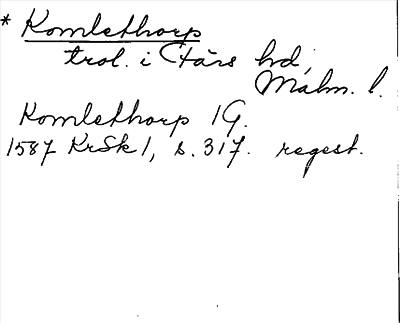 * Komlethorp
trol. i Färs hd,
Malm. l.
Komlethorp 1G.
1587 KrSk 1, s. 317. regest.